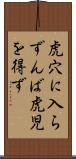 虎穴に入ら
ずんば虎児
を得ず